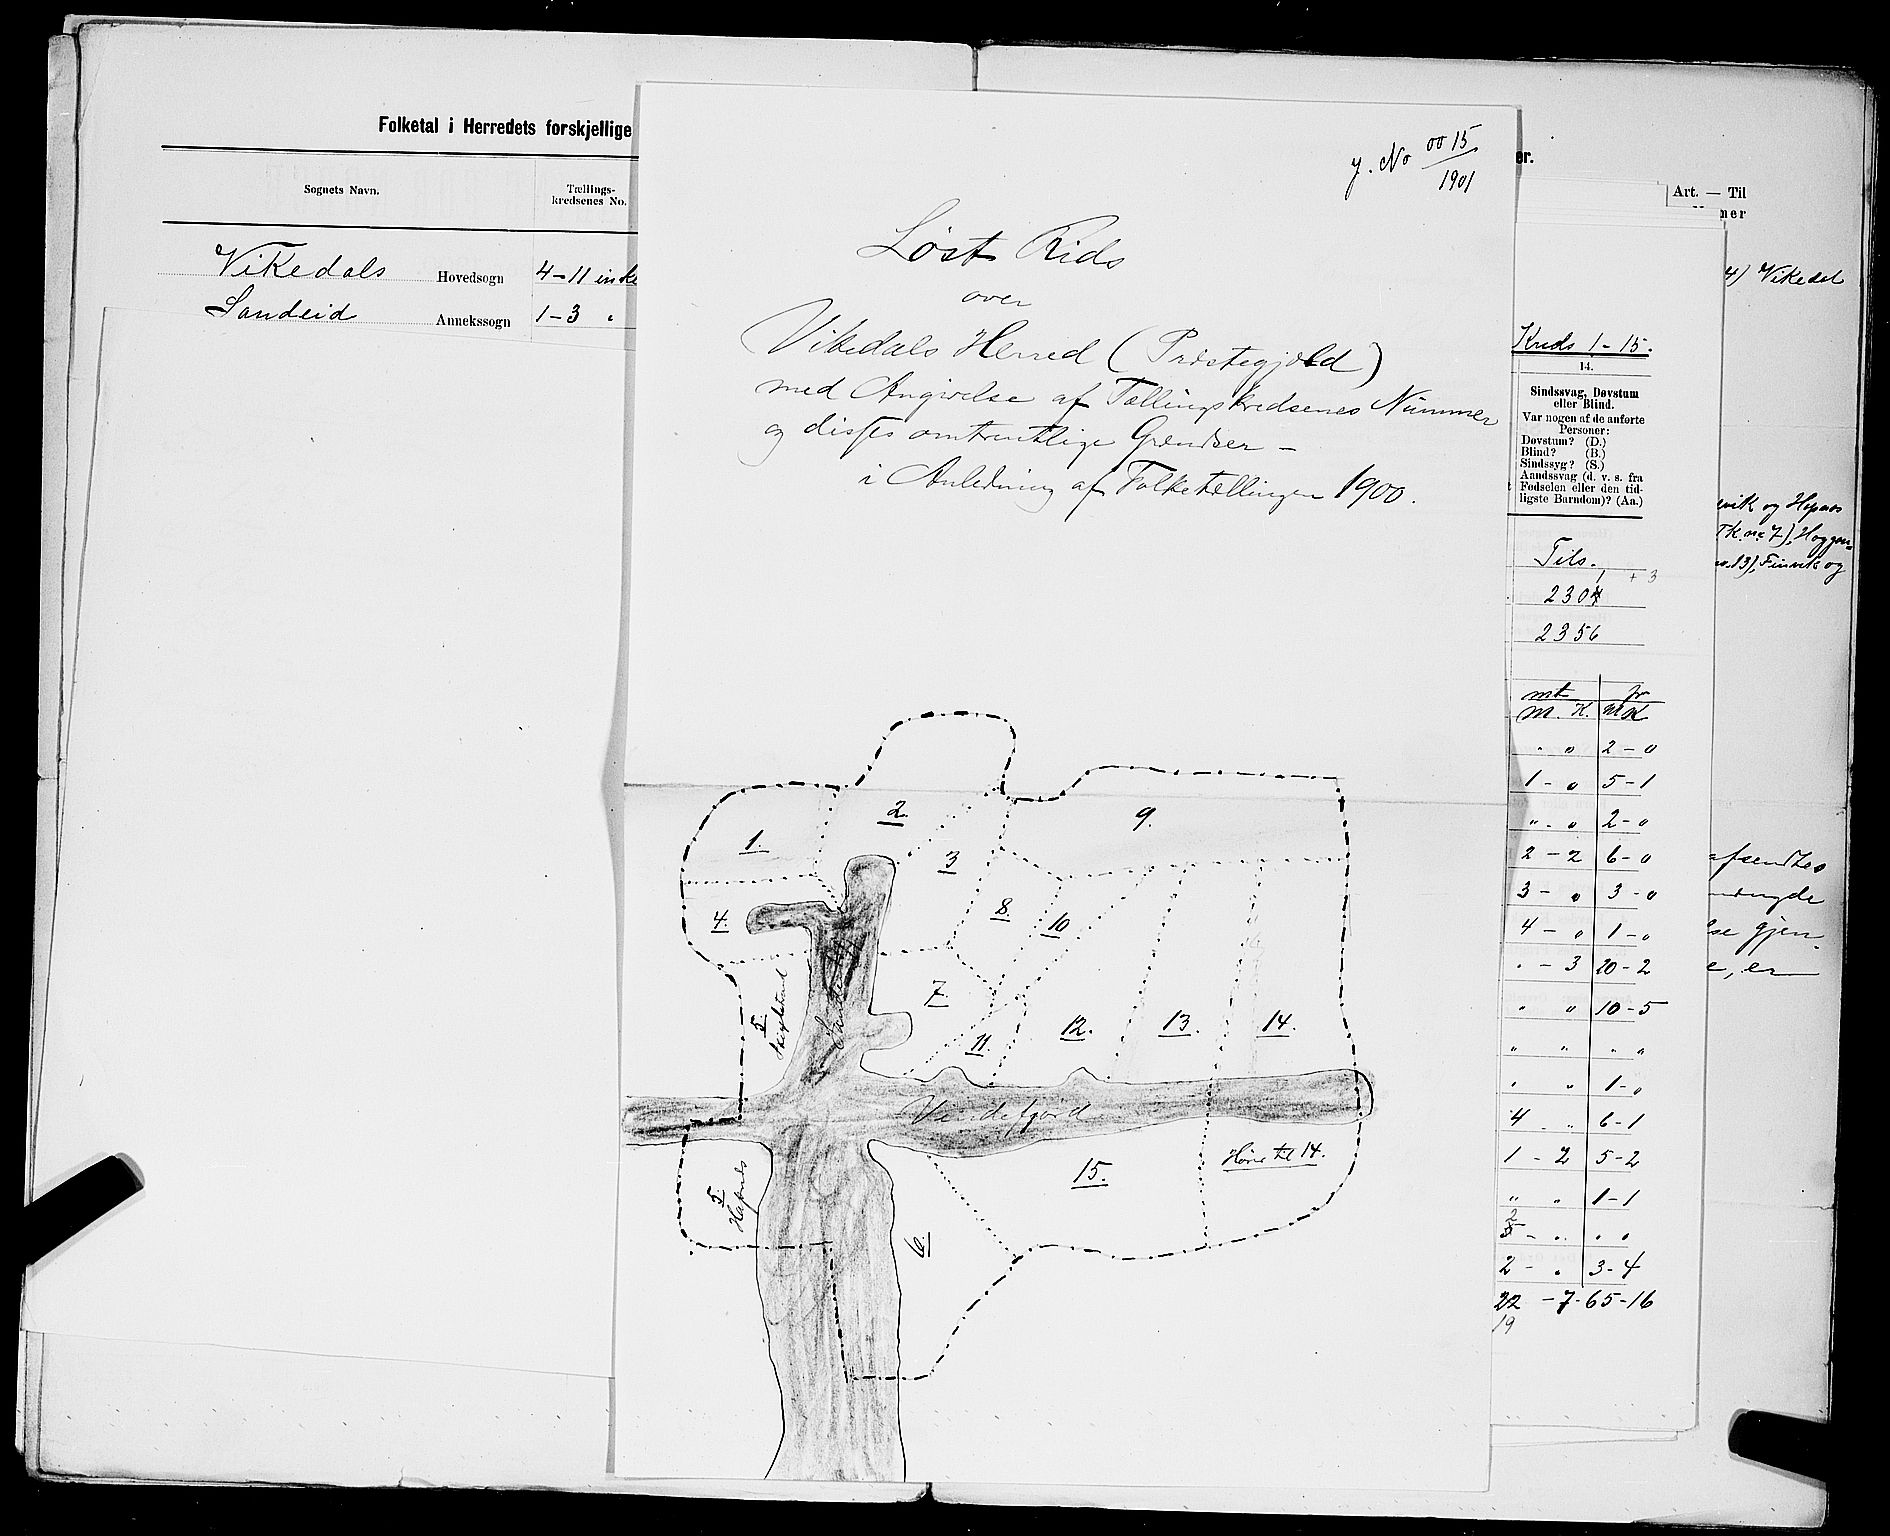 Folketal i Herredets forskjellige
Sognets Navn.
Tællings-
kredsenes No.
Vikedals Hovedsogn 4-11 inkl
Sandeid Annekssogn 1-3 "
J. No 0015/1901
Løst Rids
over
Vikedals Herred (Præstegjæld)
med Angivelse af Tællingskredsenes Nummer
og disses omtrentlige Grendser -
i Anledning af Folketællingen 1900.
1.
2.
3
4.
5 Skixlestrand
Sandeidfj
7.
8.
9.
10
11.
12.
13.
14.
Vindefjord
5. Hapnes
6
15.
Hører til 14.
er.
Kreds 1-15.
14.
Sindssvag, Døvstum
eller Blind.
Var nogen af de anførte
Personer:
Døvstum? (D.)
Blind? (B.)
Sindssyg? (S.)
Aandssvag (d. v. s. fra
Fødselen eller den tid-
ligste Barndom)? (Aa.)
Tils.
1 + 3
2304
2356
mt fr
M. K. M K
" " 2 - "
1 - " 5 - 1
" - " 2 - "
2 - 2 6 - "
3 - " 3 - "
4 - " 1 - "
" - 3 20 - 2
" " 10 - 5
" " " "
" " 1 - "
4 - " 6 - 1
1 - 2 5 - 2
" " 1 - 1
2
3 - " " "
2 - " 3 - 4
22 - 7 - 65 - 16
19
Art. — Til
mer
4) Vikedal
evik og Hapnes
Tk. nr 7), Hoggan-
no. 13), Finvik og
afsendtes
lse gjen-
e, er